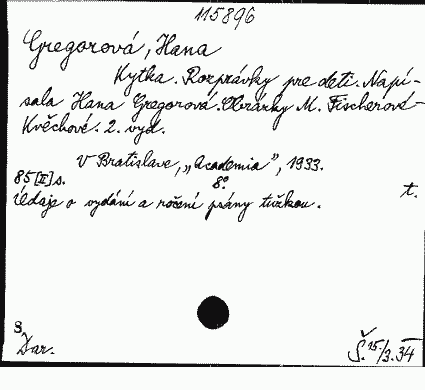 115896
Gregorová, Hana
Kytka. Rozprávky pre deti. Napí-
sala Hana Gregorová. Obrázky M. Fischerové-
Kvěchové. 2. vyd.
V Bratislave, „Academia”, 1933.
85 [II] s. 8°
t.
Údaje o vydání a ročení psány tužkou.
S
Dar.
Š. 15/3. 34